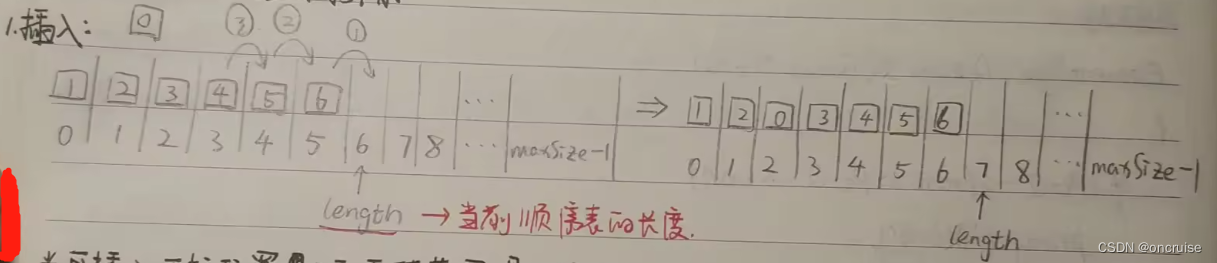 1.插入: 0
③ ② ①
1 2 3 4 5 6 ... ⇒ 1 2 0 3 4 5 6 ...
0 1 2 3 4 5 6 7 8 ... maxSize-1 0 1 2 3 4 5 6 7 8 ... maxSize-1
↑ ↑
length → 当前顺序表的长度. length
CSDN @oncruise